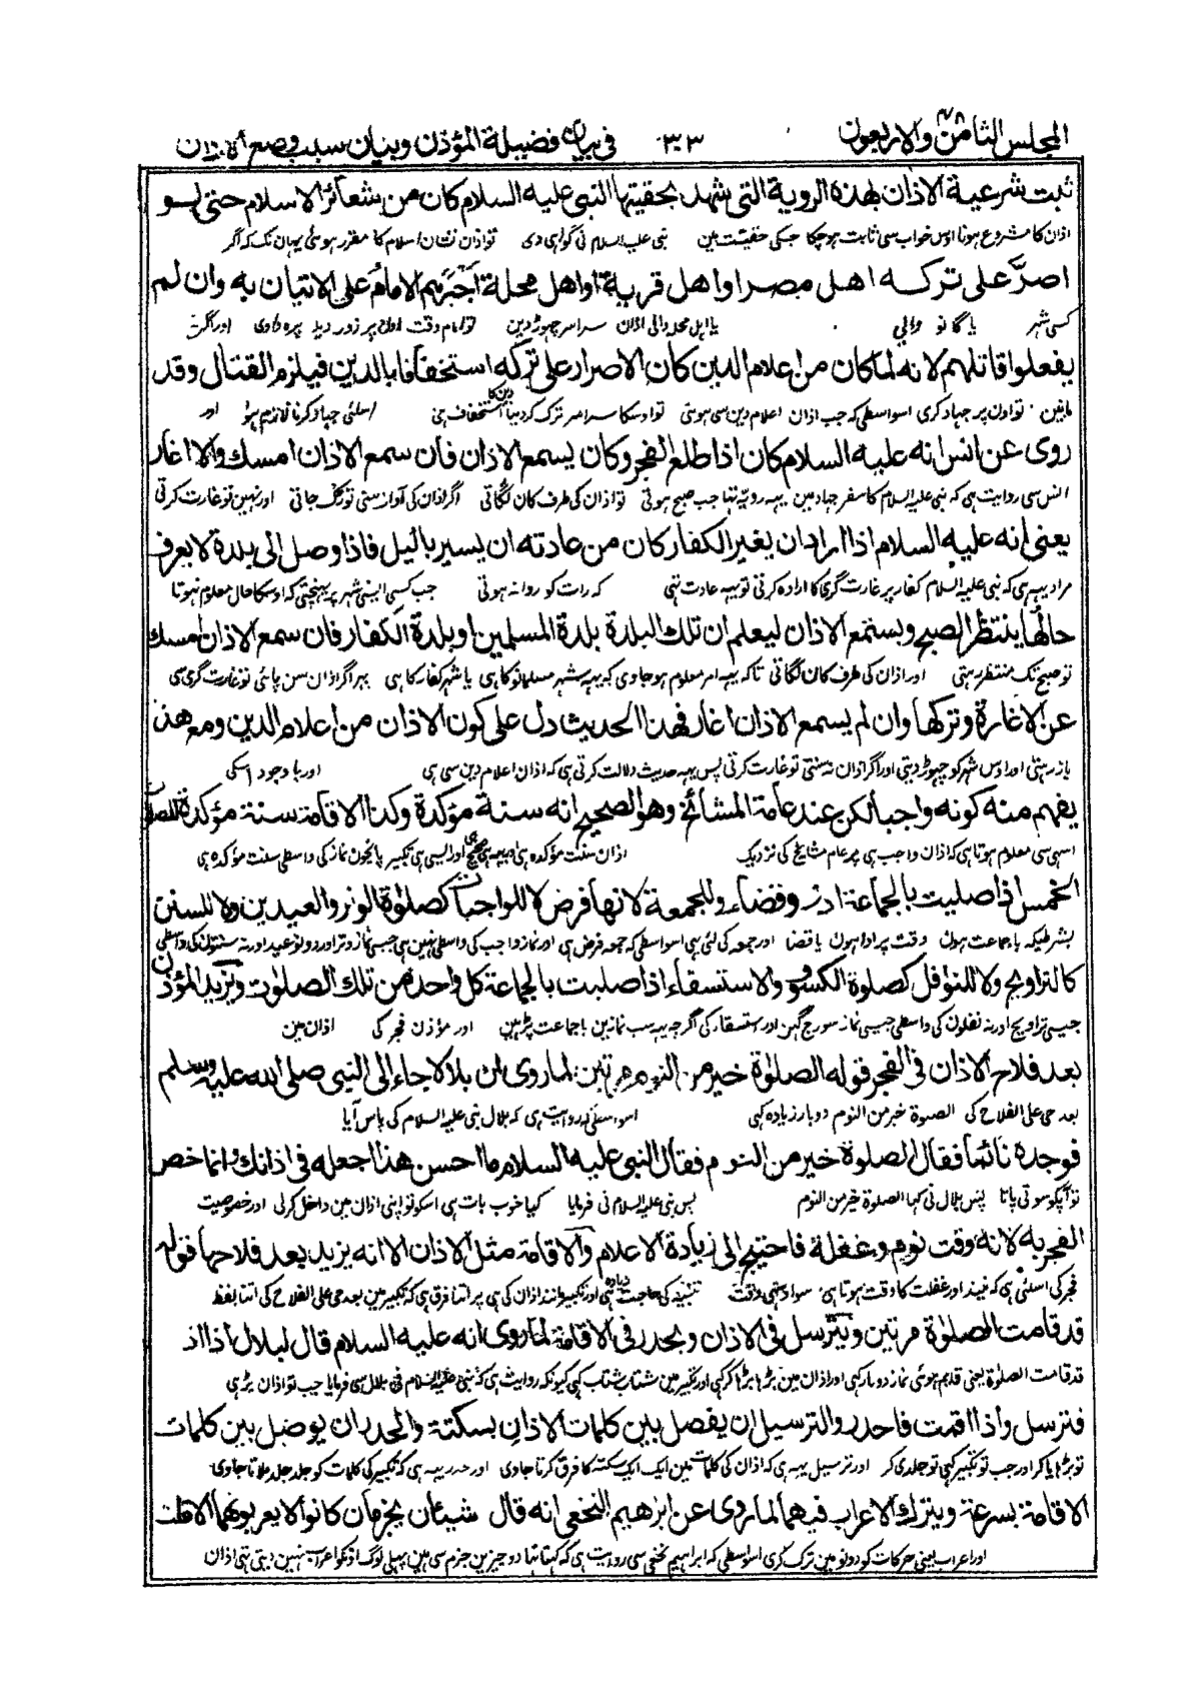 المجلس الثامن والاربعون ٣٠٣ فى بيان فضيلة المؤذن وبيان سبب وضع الاذان
ثبت شرعية الاذان بهذه الروية التى شهد بحقيتها النبى عليه السلام كان من شعائر الاسلام حتى لو
اذان کا مشروع ہونا اوس خواب سی ثابت ہو چکا جسکی حقیقت مین نبی علیہ السلام نی گواہی دی تو اذان نشان اسلام کا مقرر ہوئی یہان تک کہ اگر
اصرّ على تركه اهل مصر او اهل قرية او اهل محلة اجبرهم الامام على الاتيان به وان لم
کسی شہر یا گانو والی یا اہل محلہ والی اذان سراسر چھوڑ دین تو امام وقت اون پر زور دیکر پڑھوادی اور اگر نہ
يفعلوا قاتلهم لانه لما كان من اعلام الدين كان الاصرار على تركه استخفافا بالدين فيلزم القتال وقد
مانین تو اون پر جہاد کری اسواسطی کہ جب اذان اعلام دین سی ہوئی تو اوسکا سراسر ترک کر دینا دین کا استخفاف ہی اسلئی جہاد کرنا لازم ہوا اور
روى عن انس انه عليه السلام كان اذا طلع الفجر وكان يسمع الاذان فان سمع الاذان امسك والا اغار
انس سی روایت ہی کہ نبی علیہ السلام کا سفر جہاد مین یہہ رویہ تہا جب صبح ہوتی تو اذان کی طرف کان لگاتی اگر اذان کی آواز سنتی تو رک جاتی اور نہین تو غارت کرتی
يعنى انه عليه السلام اذا اراد ان يغير الكفار كان من عادته ان يسير باليل فاذا وصل الى بلدة لا يعرف
مراد یہہ ہی کہ نبی علیہ السلام کفار پر غارت گری کا ارادہ کرتی تو یہہ عادت تہی کہ رات کو روانہ ہوتی جب کسی ایسی شہر پر پہنچتی کہ اوسکا حال معلوم نہوتا
حالها ينتظر الصبح ويستمع الاذان ليعلم ان تلك البلدة بلدة المسلمين او بلدة الكفار فان سمع الاذان امسك
تو صبح تک منتظر رہتی اور اذان کی طرف کان لگاتی تاکہ یہہ امر معلوم ہو جاوی کہ یہہ شہر مسلمانو کا ہی یا شہر کفار کا ہی پہر اگر اذان سن پاتی تو غارت گری سی
عن الاغارة وتركها وان لم يسمع الاذان اغار فهذا الحديث دل على كون الاذان من اعلام الدين ومع هذا
باز رہتی اور اوس شہر کو چھوڑ دیتی اور اگر اذان نہ سنتی تو غارت کرتی پس یہہ حدیث دلالت کرتی ہی کہ اذان اعلام دین سی ہی اور با وجود اسکی
يفهم منه كونه واجبا لكن عند عامة المشائخ وهو الصحيح انه سنة مؤكدة وكذا الاقامة سنة مؤكدة للصلوة
اسی سی معلوم ہوتا ہی کہ اذان واجب ہی پر عام مشایخ کی نزدیک اذان سنت مؤکدہ ہی اور یہی صحیح ہی اور ایسی ہی تکبیر پانچون نماز کی واسطی سنت مؤکدہ ہی
الخمس اذا صليت بالجماعة اداء وقضاء وللجمعة لانها فرض لا للواجبات كصلوة الوتر والعيدين ولا للسنن
بشرطیکہ با جماعت ہون وقت پر ادا ہون یا قضا اور جمعہ کی لئی بھی اسواسطی کہ جمعہ فرض ہی اور نماز واجب کی واسطی نہین ہی جیسی نماز وتر اور دونو عید اور نہ سنتون کی واسطی
كالتراويح ولا للنوافل كصلوة الكسوف والاستسقاء اذا صليت بالجماعة كل واحدة من تلك الصلوت ويزيد المؤذن
جیسی تراویح اور نہ نفلون کی واسطی جیسی نماز سورج گہن اور استسقا کی اگرچہ یہہ سب نمازین با جماعت پڑہین اور مؤذن فجر کی اذان مین
بعد فلاح الاذان فى الفجر قوله الصلوة خير من النوم مرتين لما روى ان بلالا جاء الى النبى صلى الله عليه وسلم
بعد حی علی الفلاح کی الصلوة خیر من النوم دو بار زیادہ کہی اسواسطی کہ روایت ہی کہ بلال نبی علیہ السلام کی پاس آیا
فوجده نائما فقال الصلوة خير من النوم فقال النبى عليه السلام ما احسن هذا اجعله فى اذانك وانما خص
تو آپکو سوتی پایا پس بلال نی کہا الصلوة خیر من النوم پس نبی علیہ السلام نی فرمایا کیا خوب بات ہی اسکو تو اپنی اذان مین داخل کر لی اور خصوصیت
الفجر به لانه وقت نوم وغفلة فاحتيج الى زيادة الاعلام والاقامة مثل الاذان الا انه يزيد بعد فلاحها قوله
فجر کی اسلئی ہی کہ نیند اور غفلت کا وقت ہوتا ہی سو اوسی وقت زیادہ تنبیہ کی حاجت ہی اور تکبیر مانند اذان کی ہی پر اتنا فرق ہی کہ تکبیر مین بعد حی علی الفلاح کی اتنا لفظ
قد قامت الصلوة مرتين ويترسل فى الاذان ويحدر فى الاقامة لما روى انه عليه السلام قال لبلال اذا اذنت
قد قامت الصلوة یعنی قایم ہوئی نماز دو بار کہی اور اذان مین بڑہا بڑہا کر کہی اور تکبیر مین شتاب شتاب کہی کیونکہ روایت ہی کہ نبی علیہ السلام نی بلال سی فرمایا جب تو اذان پڑہی
فترسل واذا اقمت فاحدر والترسيل ان يفصل بين كلمات الاذان بسكتة والحدر ان يوصل بين كلمات
تو بڑہا یا کر اور جب تو تکبیر کہی تو جلدی کر اور ترسیل یہہ ہی کہ اذان کی کلمات مین ایک ایک سکتہ کا فرق کرتا جاوی اور حدر یہہ ہی کہ تکبیر کی کلمات کو جلد جلد ملاتا جاوی
الاقامة بسرعة ويترك الاعراب فيهما لما روى عن ابرهيم النخعى انه قال شيئان يجزمان كانوا لا يعربونهما الاذان
اور اعراب یعنی حرکات کو دونو مین ترک کری اسواسطی کہ ابراہیم نخعی سی روایت ہی کہ کہتا تہا دو چیزین جزم سی ہین پہلی لوگ انکو اعراب نہین دیتی تہی اذان